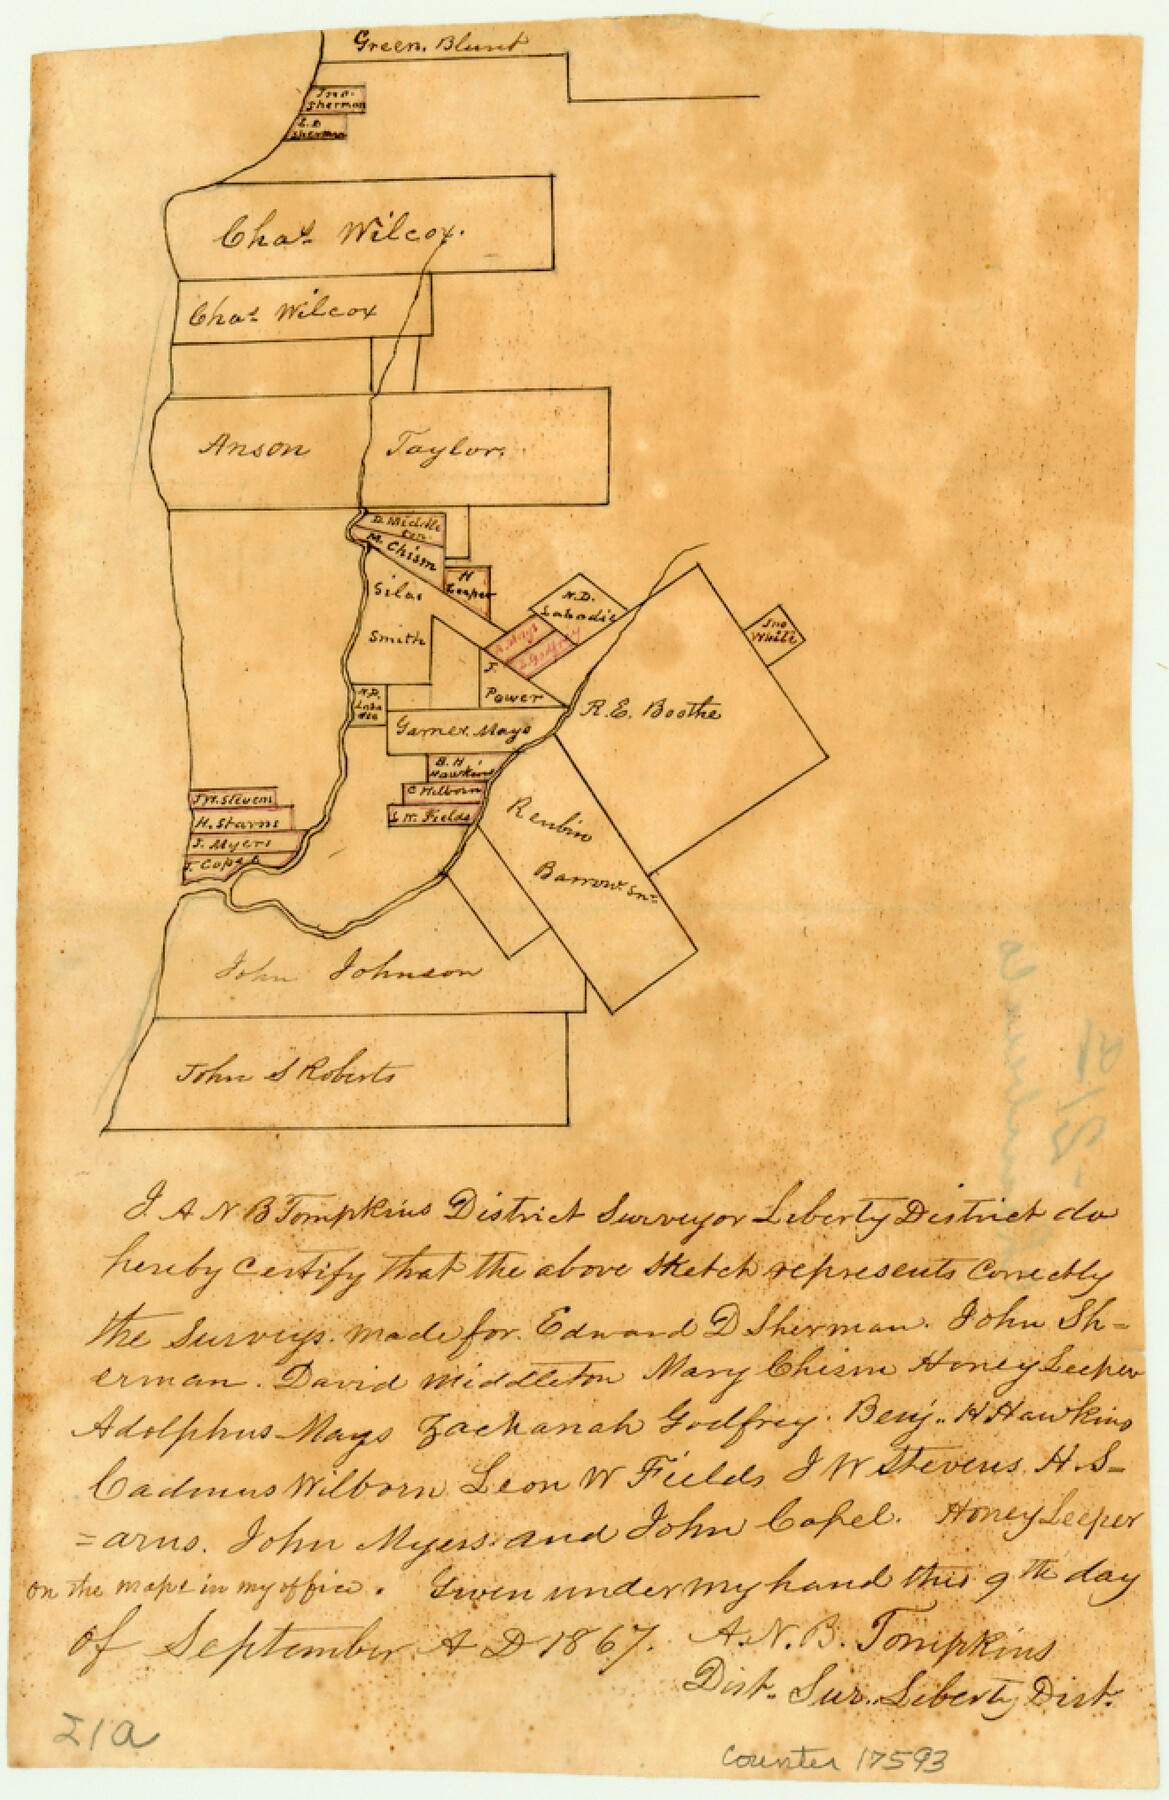 Green. Blunt
Jno.
Sherman
E. D
Sherman
Chas. Wilcox.
Chas. Wilcox
Anson Taylor.
D. Middle
ton.
M. Chism
H
Leeper
Silas
Smith
N. D.
Labadie
A. Mays
Z. Godfrey
Jno
White
J.
Power
N. D.
Laba
die
R. E. Boothe
Garner. Mays
B. H
Hawkins
C Wilborn
L W. Fields
Reubin
Barrow. Snr.
J W. Stevens
H. Starns
J. Myers
J. Copel
John Johnson
John S Roberts
I. A N. B Tompkins District Surveyor Liberty District do
hereby certify that the above sketch represents correctly
the Surveys. made for. Edward D Sherman. John Sh=
erman. David Middleton Mary Chism Honey Leeper
Adolphus Mays Zachariah Godfrey. Benj.. H Hawkins
Cadmus Wilborn Leon W Fields J W Stevens. H. S=
=arns. John Myers and John Copel. Honey Leeper
on the maps in my office. Given under my hand this 9th day
of September A D 1867. A. N. B. Tompkins
Dist. Sur.. Liberty Dist.
21a
Counter 17593